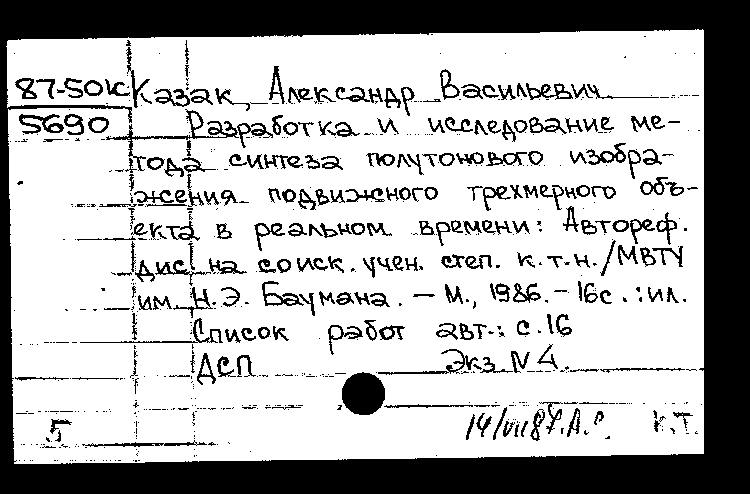 87-50к Казак, Александр Васильевич.
5690 Разработка и исследование ме-
тода синтеза полутонового изобра-
жения подвижного трехмерного объ-
екта в реальном времени: Автореф.
дис. на соиск. учен. степ. к.т.н./МВТУ
им. Н.Э. Баумана. - М., 1986. - 16с.: ил.
Список работ авт.: с.16
ДСП Экз N 4.
5 14/VII 87. К.Т.